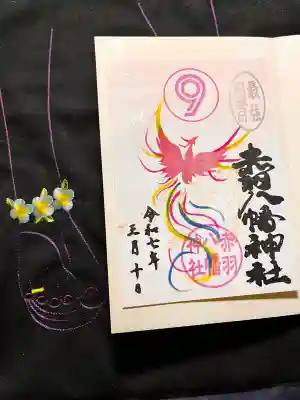 9
最強
開運日
赤羽八幡神社
令和七年
三月十日
赤羽
八幡
神社